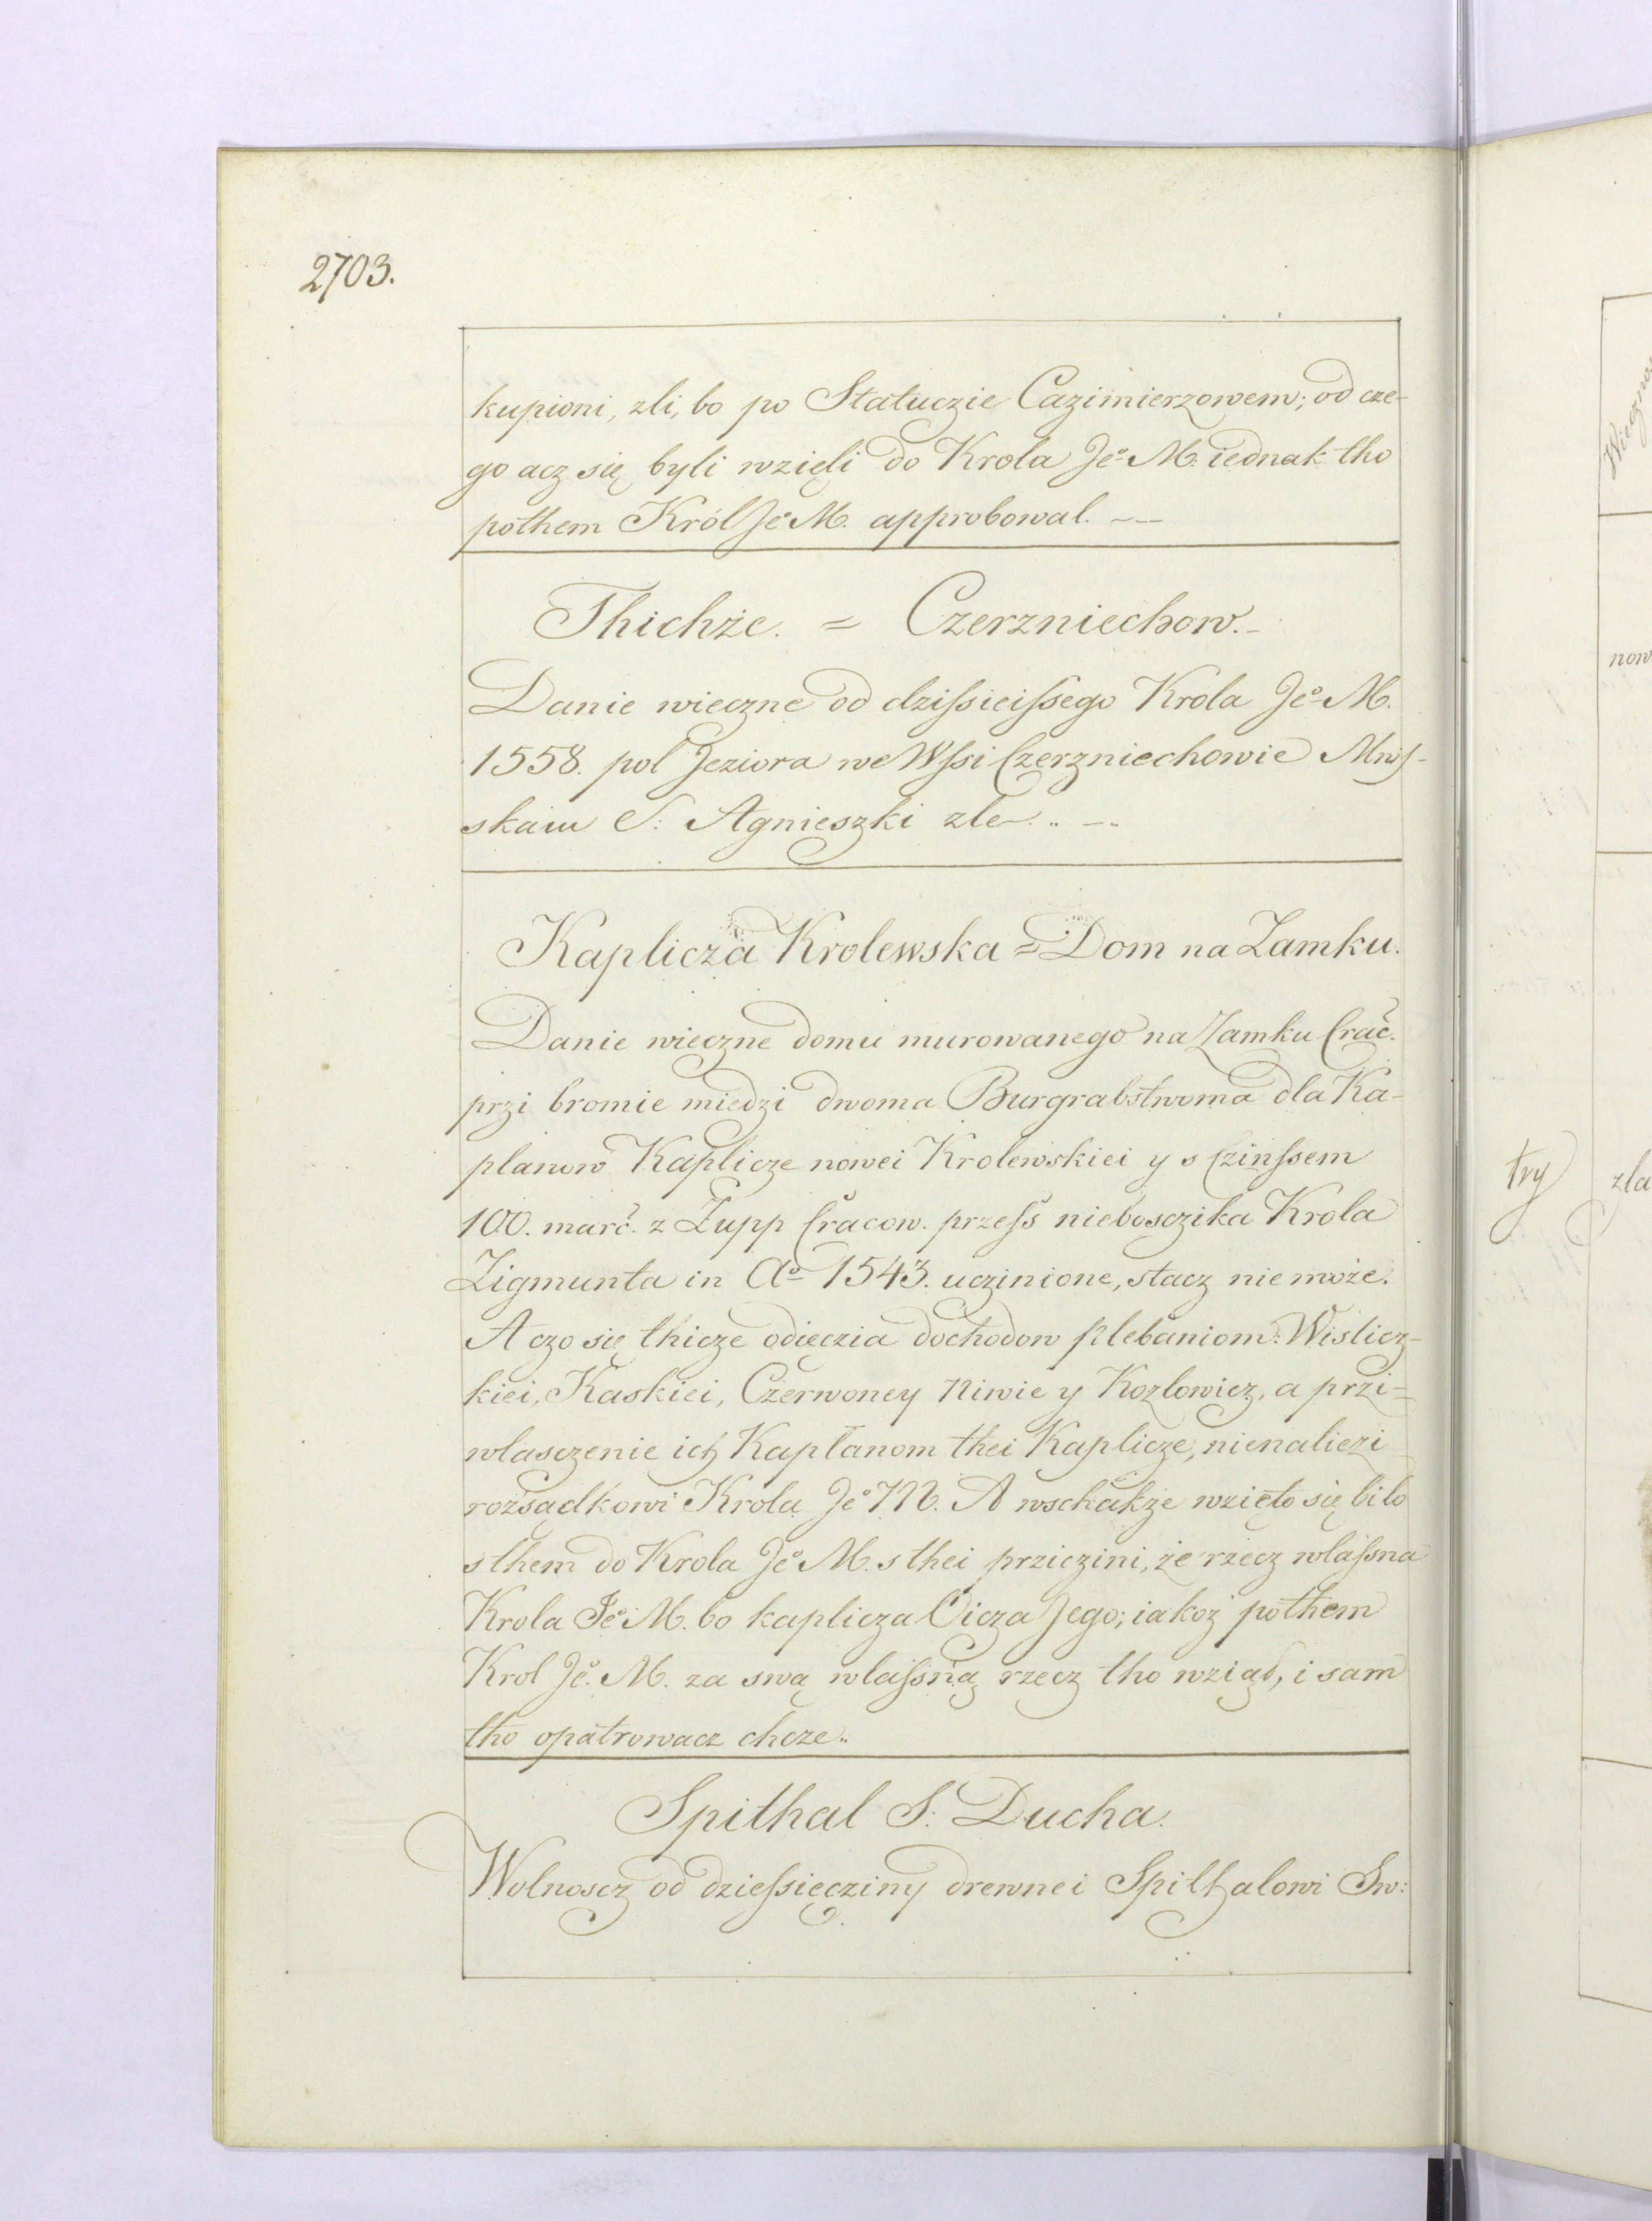 2703.
kupioni, zli, bo po Statuczie Cazimierzowem; od cze-
go acz się byli wzięli do Krola Je° M. iednak tho
pothem Król Je° M. approbowal.
Thichże. = Czerzniechow.
Danie wieczne od dzisſieiſsego Krola Je° M.
1558. pol Jeziora we Wſsi Czerzniechowie Mniſ-
skam S: Agnieszki zle
Kaplicza Krolewska = Dom na Zamku.
Danie wieczne domu murowanego na Zamku Crac̃.
przi bromie miedzi dwoma Burgrabstwoma dla Ka-
planow Kaplicze nowei Krolewskiei y s Czinſsem
100. marc̃. z Zupp Cracow. przeſs nieboszczika Krola
Zigmunta in A° 1543. uczinione, stacz nie może.
A czo się thicze odięczia dochodow plebaniom: Wislicz-
kiei, Kaskiei, Czerwoney Niwie y Kozlowicz, a przi=
wlasczenie ich Kapłanom thei Kaplicze, nienalieżi
rozsądkowi Krola Je° M. A wschakże wzięło się bilo
s them do Krola Je° M. s thei prziczini, że rzecz wlaſsna
Krola Je° M. bo kaplicza Oicza Jego; iakoż pothem
Krol Je° M. za swą wlaſsną rzecz tho wziął, i sam
tho opatrowacz chcze.
Spithal S: Ducha.
Wolnoscz od dzieſsięcziny drewnei Spithalowi Sw:
try
zla
now